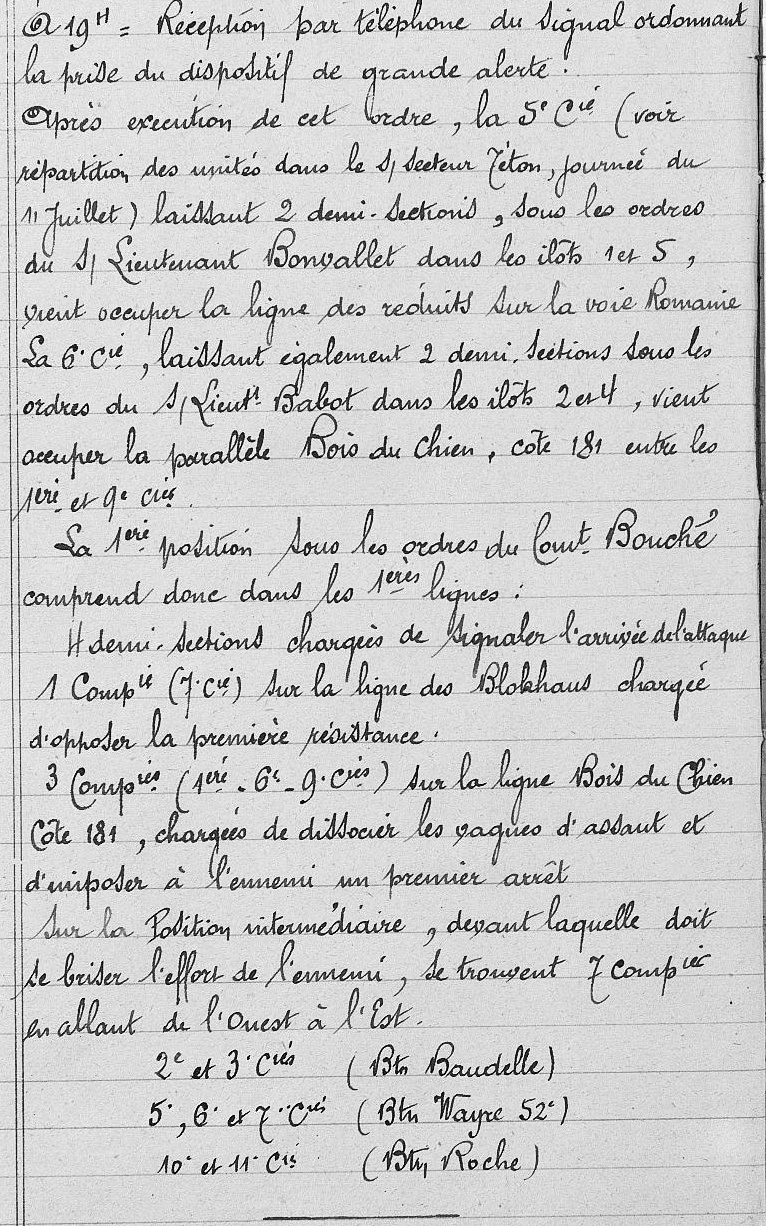 A 19H = Réception par téléphone du signal ordonnant
la prise du dispositif de grande alerte.
Après execution de cet ordre, la 5e Cie (voir
répartition des unités dans le s/ secteur Téton, journeé du
11 Juillet) laissant 2 demi-sections, sous les ordres
du S/ Lieutenant Bonvallet dans les ilôts 1 et 5,
vient occuper la ligne des reduits sur la voie Romaine
La 6e Cie, laissant également 2 demi-sections sous les
ordres du S/ Lieutt Babot dans les ilôts 2 et 4, vient
occuper la parallèle Bois du Chien, côte 181 entre les
1ere et 9e Cies.
La 1ere position sous les ordres du Comt Bouché
comprend donc dans les 1eres lignes :
4 demi-sections chargées de signaler l'arrivée de l'attaque
1 Compie (7e Cie) sur la ligne des Blokhaus chargée
d'opposer la première résistance.
3 Compies (1ere - 6e - 9e Cies) sur la ligne Bois du Chien
Côte 181, chargées de dissocier les vagues d'assaut et
d'imposer à l'ennemi un premier arrêt
Sur la Position intermédiaire, devant laquelle doit
se briser l'effort de l'ennemi, se trouvent 7 compies
en allant de l'Ouest à l'Est.
2e et 3e Cies (Btn Baudelle)
5e, 6e et 7e Cies (Btn Wayre 52e)
10e et 11e Cies (Btn Roche)